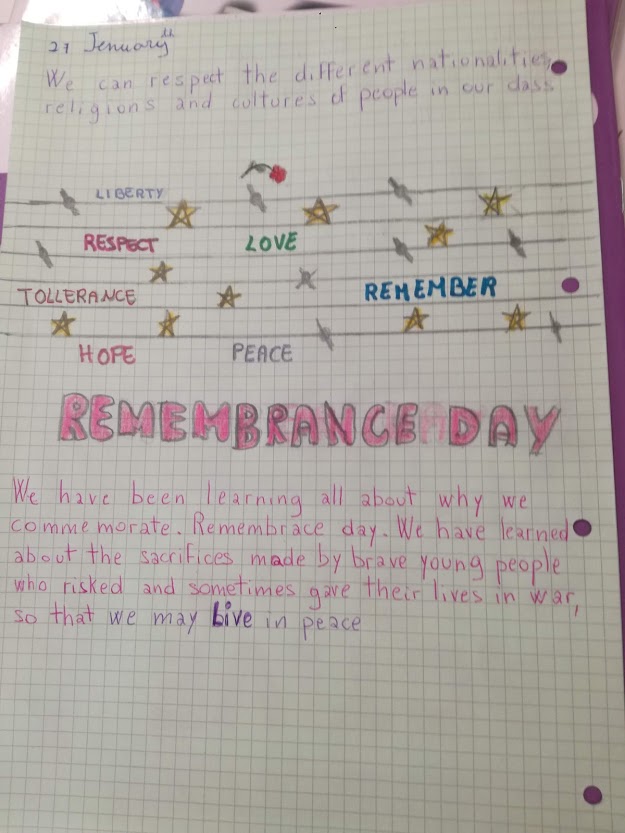 27 Jenuary th
We can respect the different nationalities,
religions and cultures of people in our class
LIBERTY
RESPECT LOVE
TOLLERANCE REMEMBER
HOPE PEACE
REMEMBRANCE DAY
We have been learning all about why we
commemorate. Remembrace day. We have learned
about the sacrifices made by brave young people
who risked and sometimes gave their lives in war,
so that we may live in peace